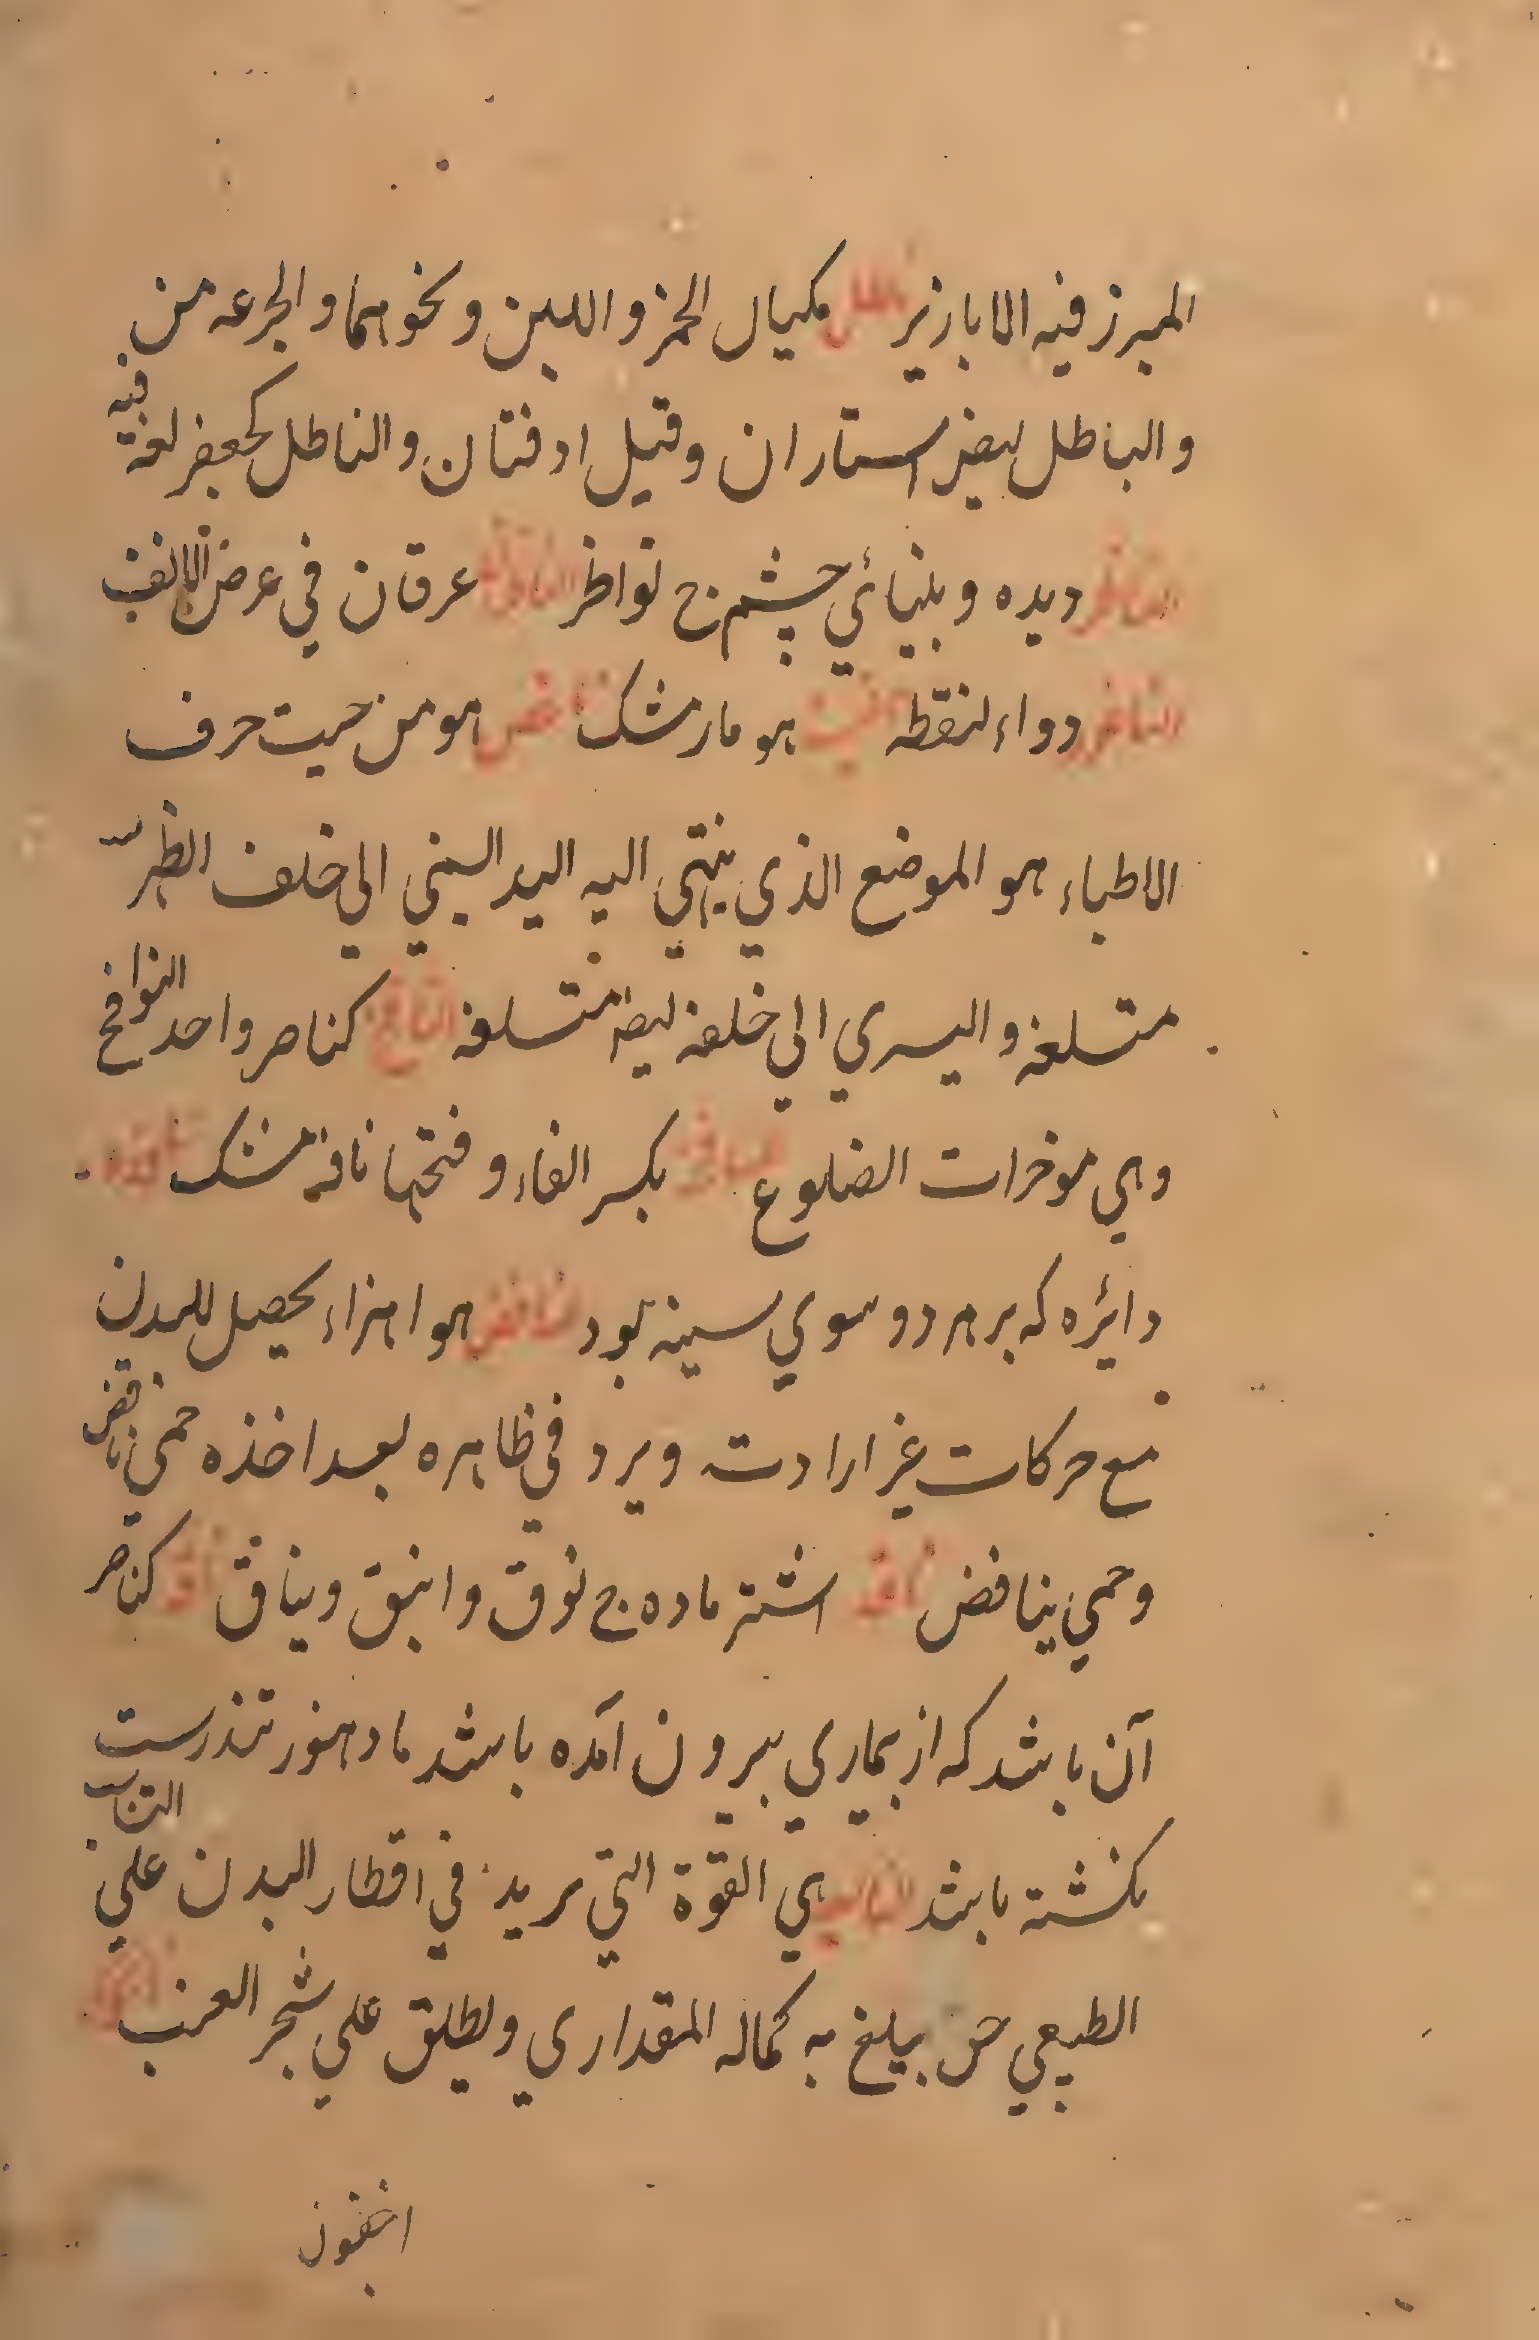 المبرز فيه الابازير ناطل مكيال الخمر واللبن ونحوهما والجرعه من
والباطل ليضر استاران وقيل اوقتان والناطل كجعفر لغة فيه
الناظر ديده و بينائي چشم ج نواظر الناظران عرقان في عرض الانف
الناغر دواء لنقطه هو مارمشك ناغض هو من حيث حرف
الاطباء هو الموضع الذي ينتهي اليه اليد اليمني الي خلف الظهر
متسلغه واليسري الي خلفه ليضا متسلغه النافج كناصر واحد النوافج
وهي موخرات الضلوع النافجه بكسر الفاء و فتحها نافه مشك
دايره كه بر هر دو سوي سينه بود نافض هو اهتزاء يحصل للبدن
مع حركات غير ارادت ويرد في ظاهره بعد اخذه حمي نافض
وحمي ينافض ناقه اشتر ماده ج نوق وانبق ونياق ناقه كناصر
آن باشد كه از بيماري بيرون آمده باشد ماد هنوز تندرست
نكشته باشد الناميه هي القوة التي يريد في اقطار البدن علي التناسب
الطبيعي حتي يبلغ به كماله المقداري ويطلق علي شجر العنب